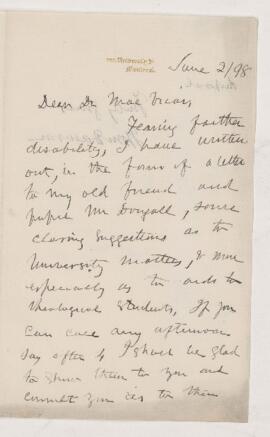 June 2/98
Dear Dr Mac Vicar,
Fearing further
disability, I have written
out, in the form of a letter
to my old friend and
pupil Mr Dougall, some
closing suggestions as to
University matters, & more
especially as to aids to
theological students. If you
can call any afternoon
say after 4 I shall be glad
to show them to you and
consult you as to them